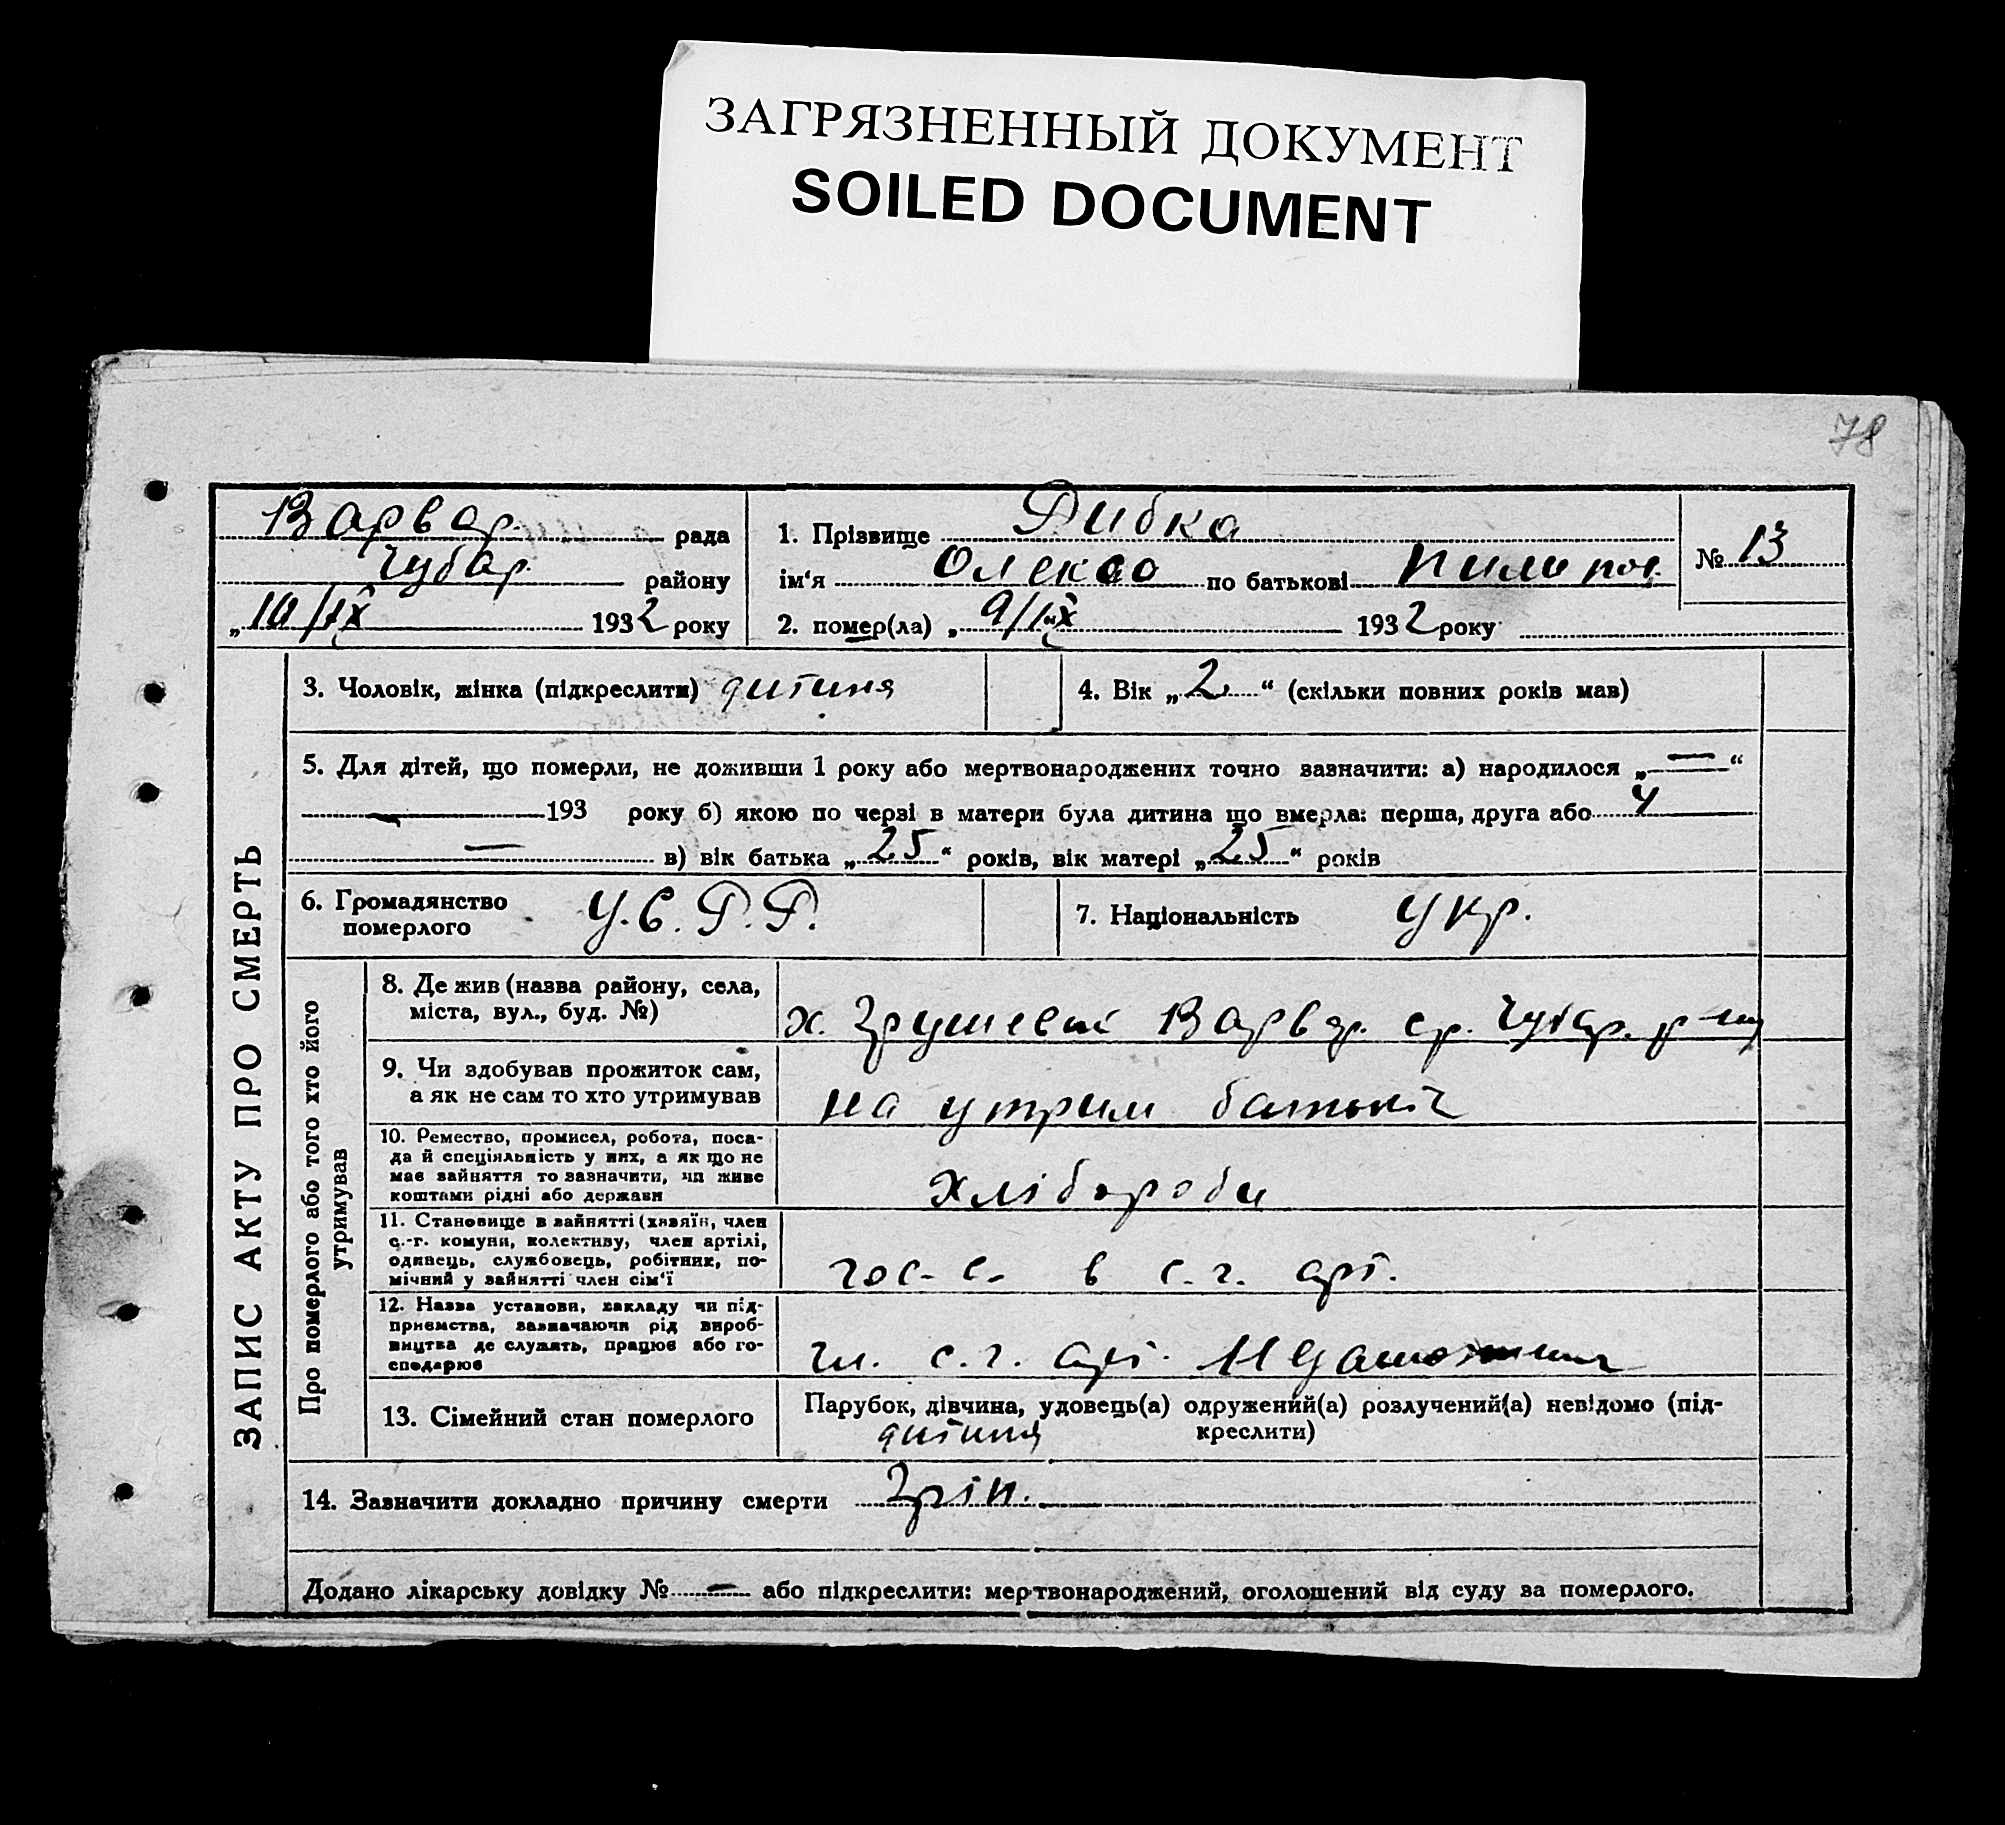 ЗАГРЯЗНЕННЫЙ ДОКУМЕНТ
SOILED DOCUMENT
78
Варвар. рада
Чубар. району
„10/IX 1932 року
1. Прізвище Рибка
ім‘я Олекса по батькові Пилипов.
2. помер(ла) „9/IX 1932 року
№ 13
ЗАПИС АКТУ ПРО СМЕРТЬ
3. Чоловік, жінка (підкреслити) дитина
4. Вік „2“ (скільки повних років мав)
5. Для дітей, що померли, не доживши 1 року або мертвонароджених точно зазначити: а) народилося „—“
— 193 року б) якою по черзі в матери була дитина що вмерла: перша, друга або 4
— в) вік батька „25“ років, вік матері „25“ років
6. Громадянство
померлого
У.С.Р.Р.
7. Національність Укр.
Про померлого або того хто його
утримував
8. Де жив (назва району, села,
міста, вул., буд. №)
х. Варвар. ср. Чубар. р-ну
9. Чи здобував прожиток сам,
а як не сам то хто утримував
на утрим батьків
10. Ремество, промисел, робота, поса-
да й спеціяльність у них, а як що не
має зайняття то зазначити, чи живе
коштами рідні або держави
хлібороби
11. Становище в зайнятті (хазяїн, член
с.-г. комуни, колективу, член артілі,
одинець, службовець, робітник, по-
мічний у зайнятті член сім‘ї
гос-с. в с.г. арт.
12. Назва установи, закладу чи під-
приємства, зазначаючи рід вироб-
ництва де служать, працює або го-
сподарює
чл. с.г. арт.
13. Сімейний стан померлого
Парубок, дівчина, удовець(а) одружений(а) розлучений(а) невідомо (під-
креслити)
дитина
14. Зазначити докладно причину смерти Грип.
Додано лікарську довідку № — або підкреслити: мертвонароджений, оголошений від суду за померлого.